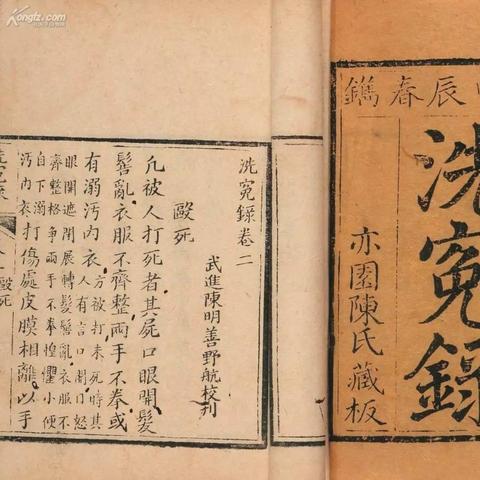 Kongfz.com
辰春鐫
洗冤錄
亦園陳氏藏板
洗冤錄卷二
武進陳明善野航校刊
毆死
凡被人打死者其屍口眼開髮
髻亂衣服不齊整兩手不拳或
有溺汚內衣
方被打未死時其
人有言口開怒
眼開遮閉展轉髮髻亂衣服不
齊整格爭兩手不拳惶懼小便
自下溺
汚內衣
打傷處皮膜相離以手
毆死